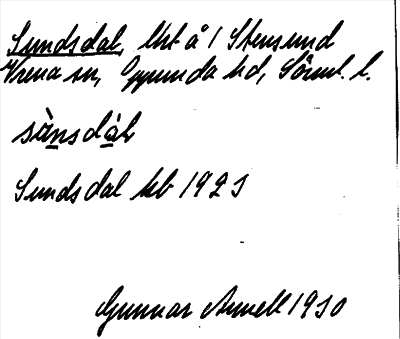 Sundsdal, lht å 1 Stensund
Vrena sn, Oppunda hd, Sörml. l.
sùnsdàl
Sundsdal kb 1925
Gunnar Arnell 1930